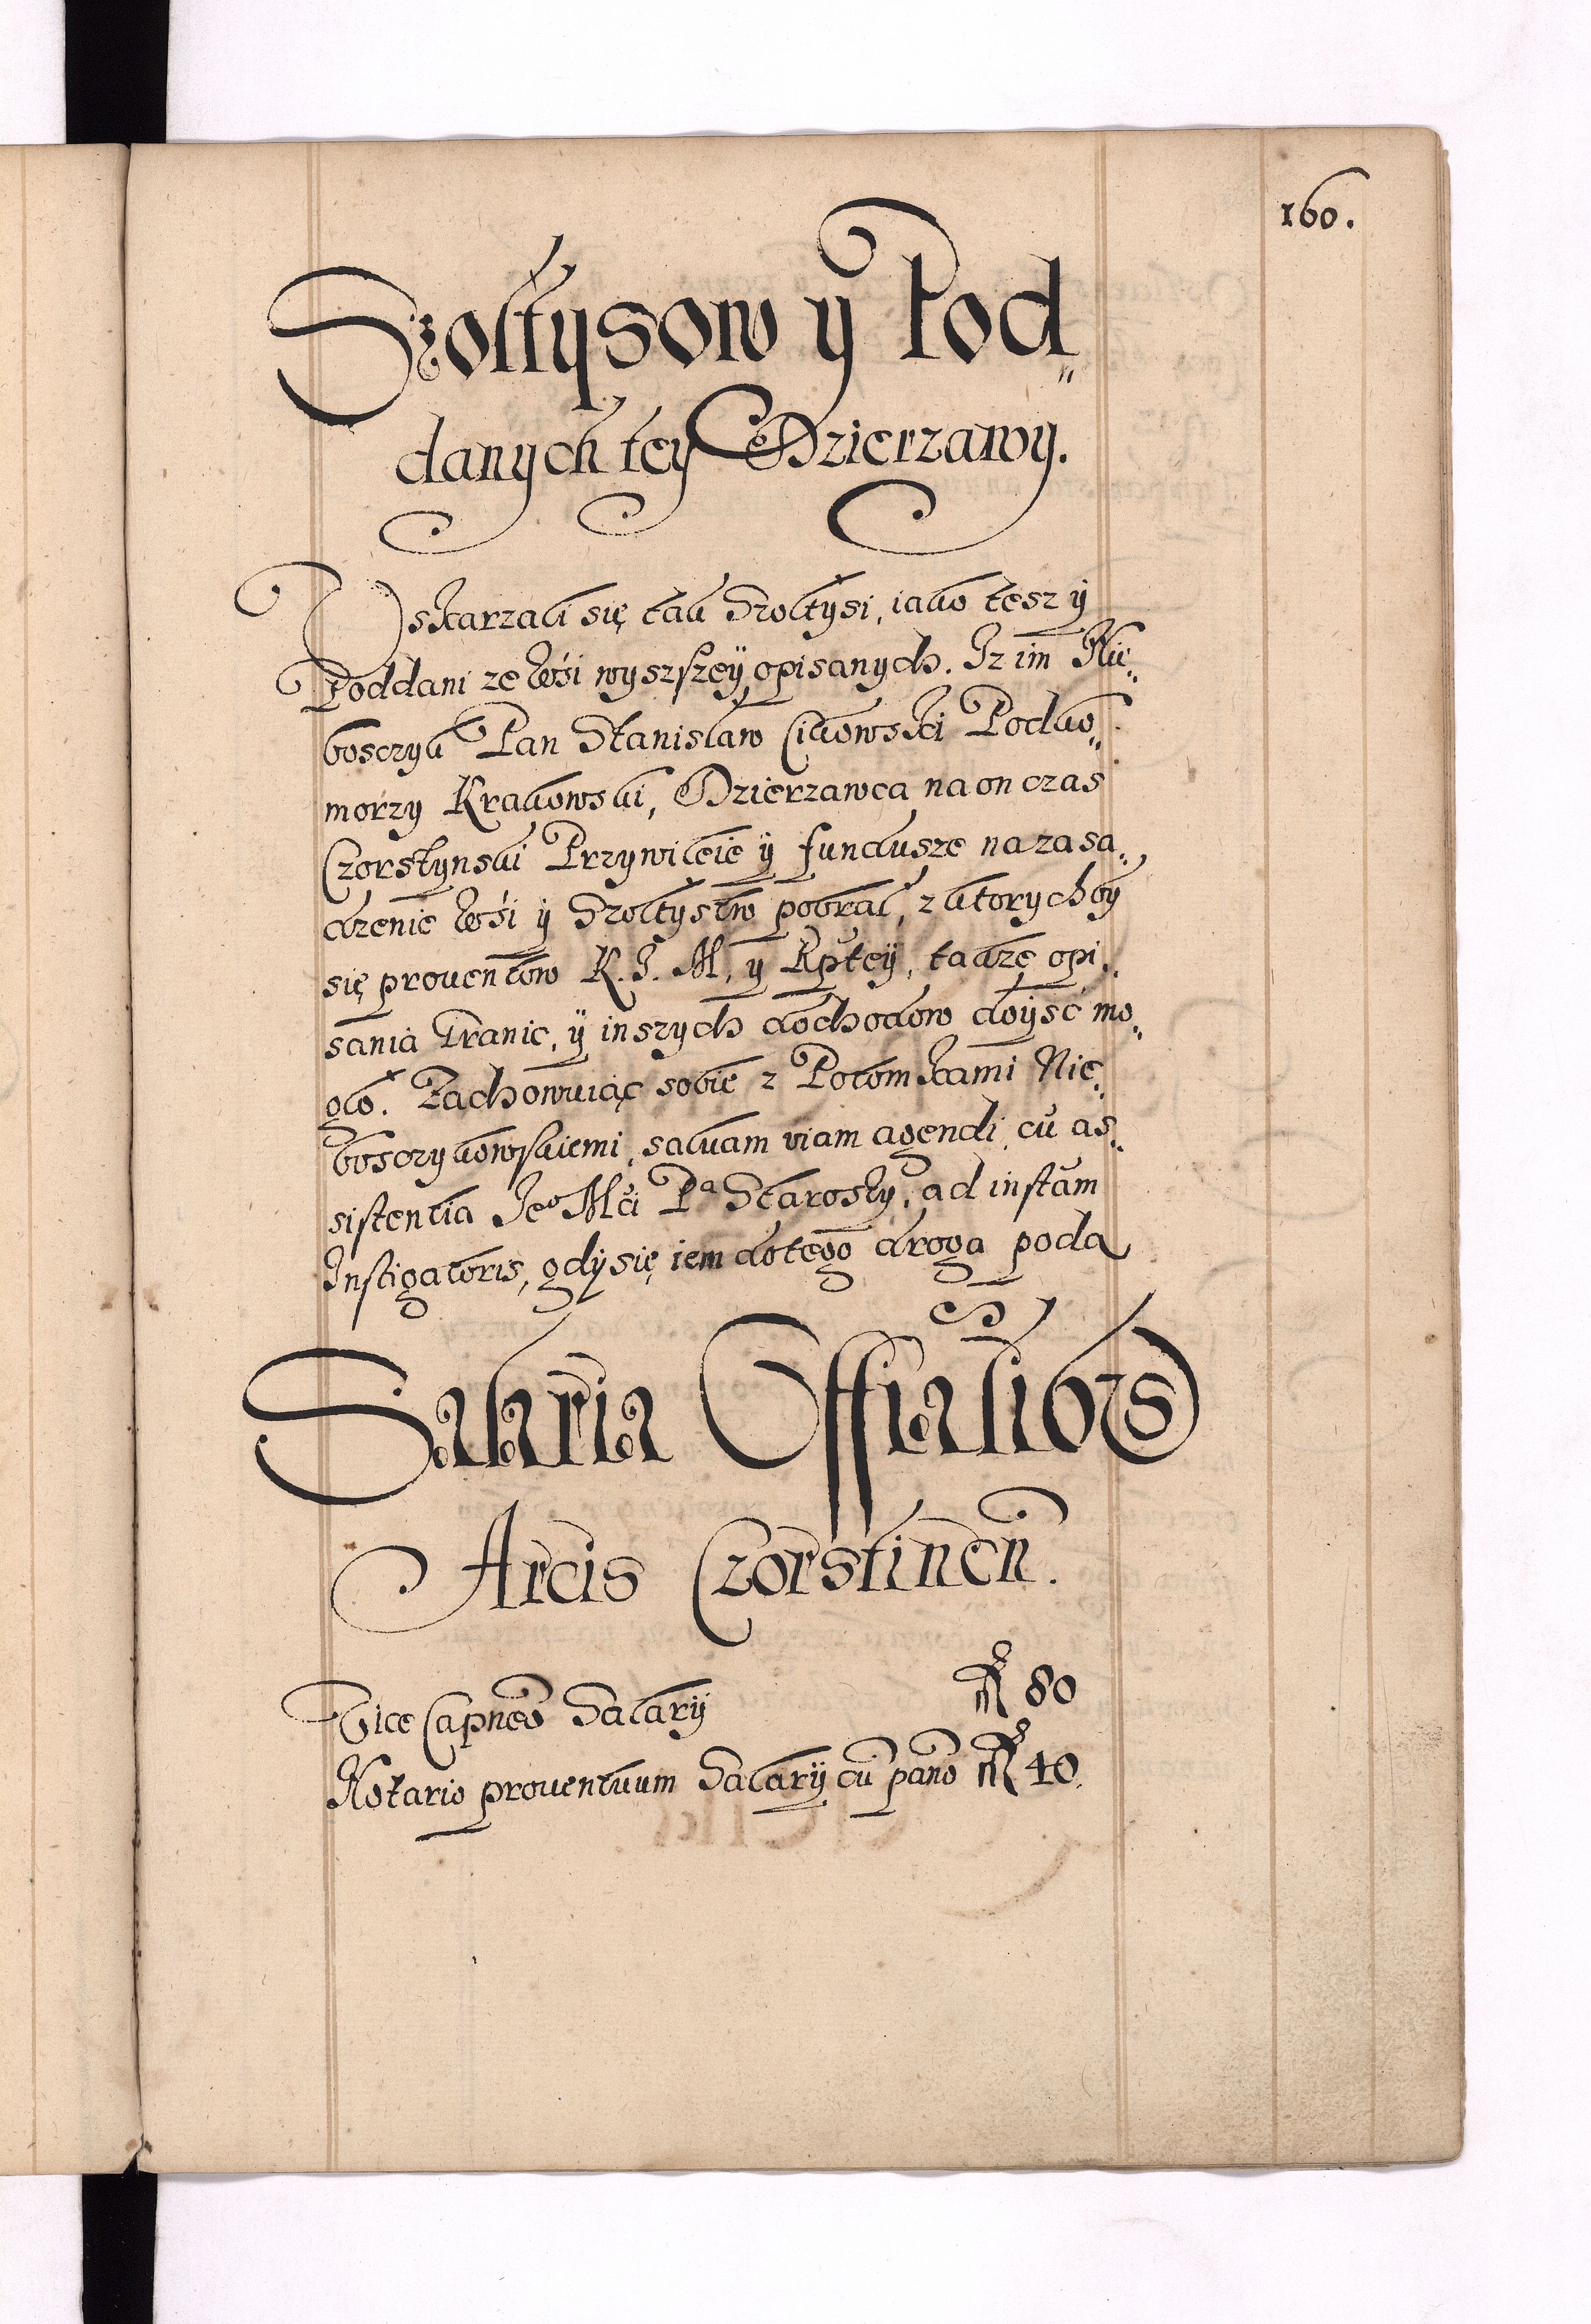 160.
Szołtysow y Pod„
danych tey Dzierzawy.
Uskarzali się tak Szołtysi, iako tesz ÿ
Poddani ze Wśi wyszszeÿ opisanych. Jz im Nie„
bosczyk Pan Stanislaw Cikowski Podko„
morzy Krakowski, Dzierzawca na on czas
Czorstynski Przywileie ÿ fundusze na zasa„
dzenie Wśi ÿ Szołtystw pobrał, z ktorych bÿ
się prouentow K. J. M. y Rpteÿ, takze opi„
sania Granic, ÿ inszych dochodow doÿsć mo„
gło. Zachowuiąc sobie z Potomkami Nie„
bosczykowskiemi, saluam viam agendi cũ as„
sistentia Jeo Mči Pa Starosty, ad instãm
Instigatoris, gdÿ się iem do tego droga poda
Salaria Officialiors
Arcis Czorstinen.
Vice Capneo Salarÿ 80
Notario prouentuum Salarÿ cũ pano 40.